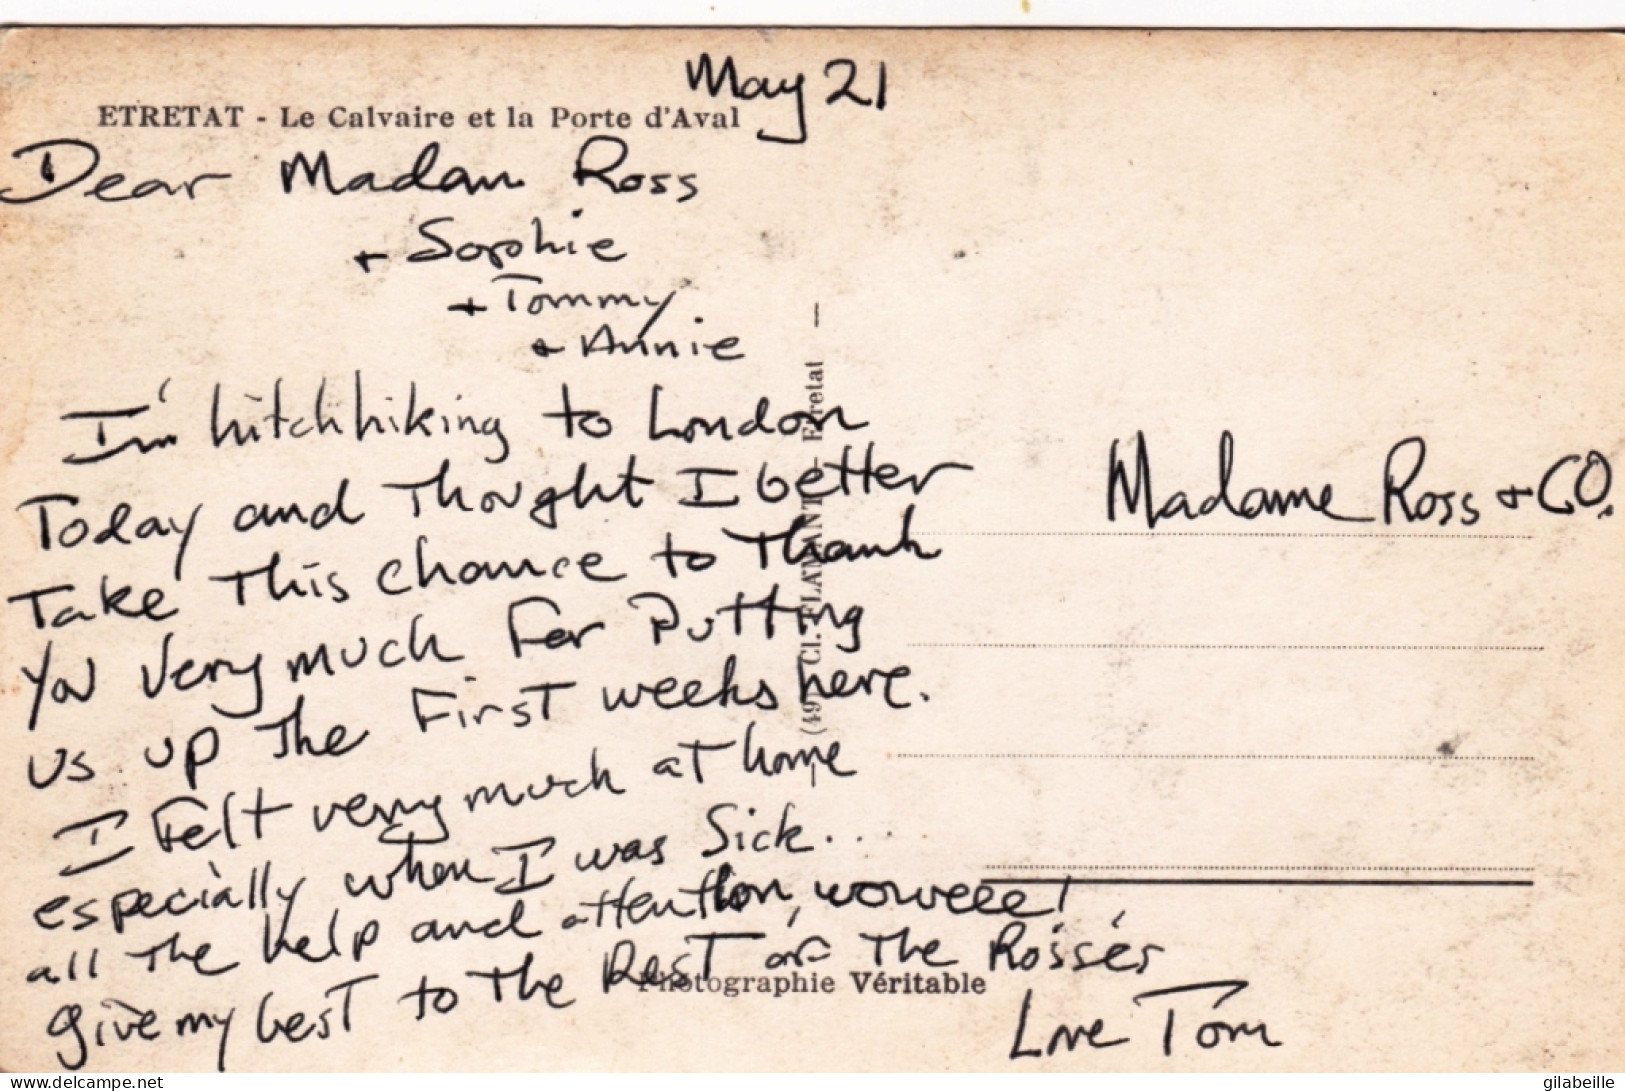 May 21
ETRETAT - Le Calvaire et la Porte d'Aval
Dear Madam Ross
+ Sophie
+ Tommy
+ Annie
I'm hitchhiking to London
Today and Thought I better
Take This chance to Thank
You very much For Putting
us up The First weeks here.
I Felt very much at home
especially when I was Sick...
all The help and attention, woweee!
give my best to The Rest of The Rosses
Love Tom
Madame Ross + CO.
(49) Cl. FLAMANT - Etretat -
Photographie Véritable
delcampe.net
gilabeille